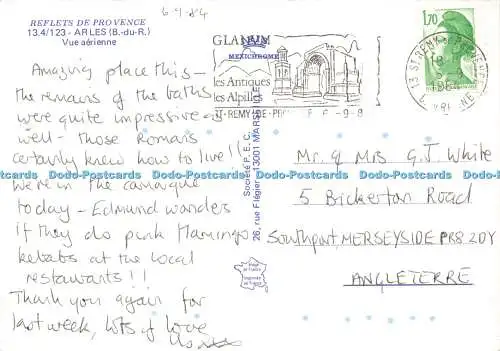 6-9-84
REFLETS DE PROVENCE
13.4/123 - ARLES (B.-du-R.)
Vue aérienne
MEXICHROME
GLANUM
les Antiques
les Alpilles
ST-REMY-DE-PR
1,70
13 ST REMY DE PROVENCE
18 H
5-9
1984
Amazing place this -
the remains of the baths
were quite impressive as
well - those Romans
certainly knew how to live!!
We're in the camargue
today - Edmund wonders
if they do pink flamingo
kebabs at the local
restaurants!!
Thank you again for
last week, lots of love
Us
Société P.E.C.
26, rue Flégier - 13001 MARSEILLE
Image de France
Imprimée en France
Mr & Mrs G.J. White
5 Brickerton Road
Southport, MERSEYSIDE PR8 2DY
ANGLETERRE
Dodo-Postcards Dodo-Postcards Dodo-Postcards Dodo-Postcards Dodo-Postcards